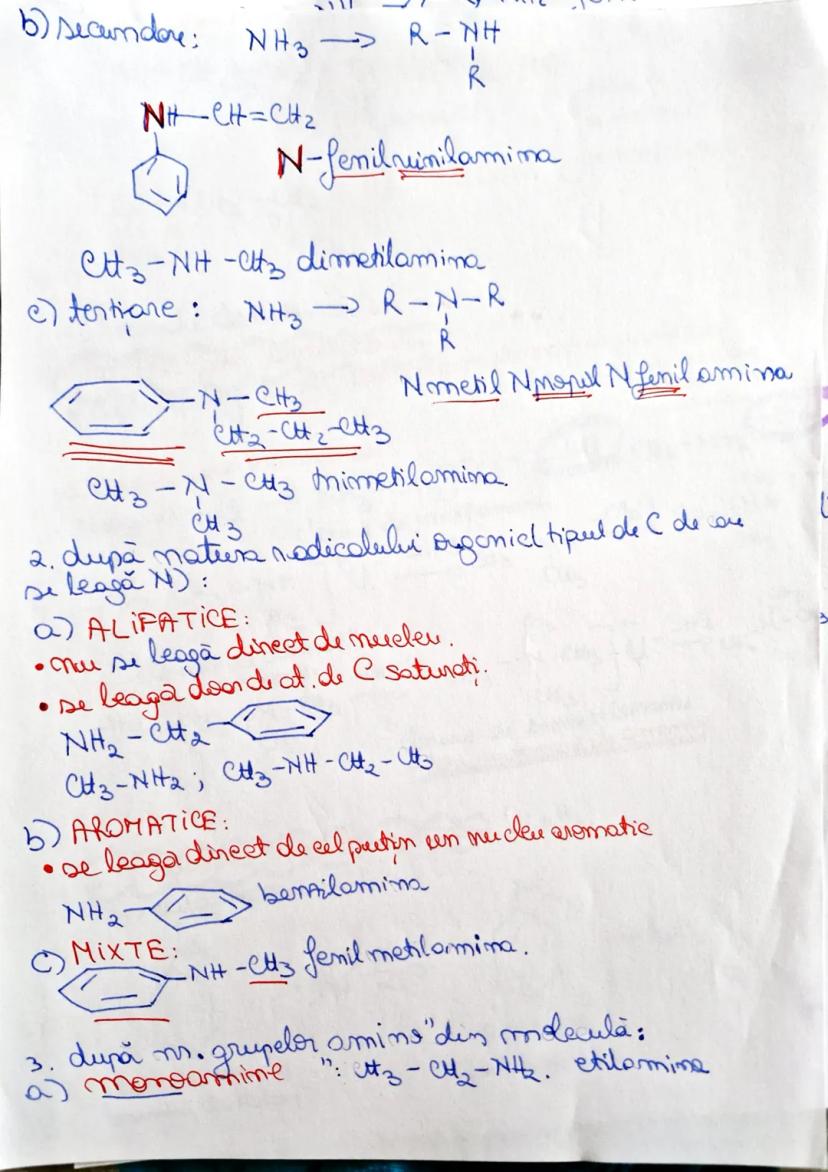 b) secundare: NH3 → R – NH
R
NH – CH = CH2
N-fenilvinilamina
CH3 – NH – CH3 dimetilamina
c) terțiare: NH3 → R – N – R
R
– N – CH3 N metil N propil N fenil amina
CH2 – CH2 – CH3
CH3 – N – CH3 trimetilamina.
CH3
2. după natura radicalului organic( tipul de C de care
se leagă N):
a) ALIFATICE:
• nu se leagă direct de nucleu.
• se leagă doar de at. de C saturați.
NH2 – CH2 –
CH3 – NH2 ; CH3 – NH – CH2 – CH3
b) AROMATICE:
• se leaga direct de cel puțin un nucleu aromatic
NH2 – benzilamina
c) MIXTE:
– NH – CH3 fenil metilamina.
3. după nr. grupelor amino" din moleculă:
a) monoamine ": CH3 – CH2 – NH2. etilamina